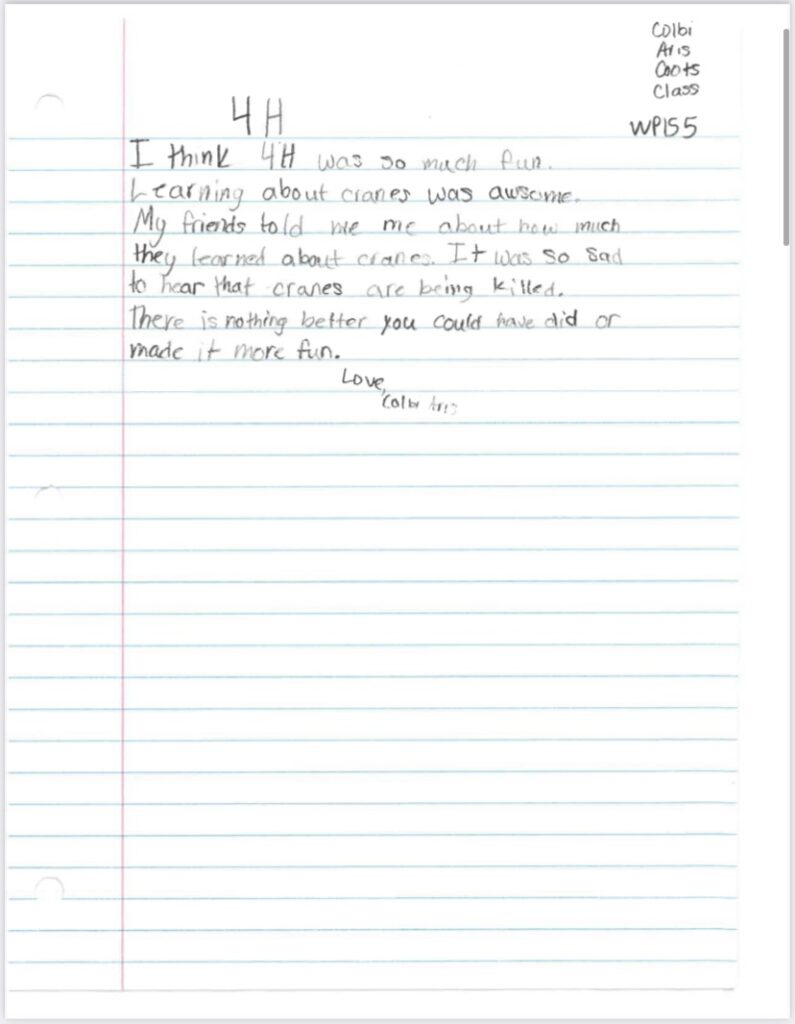 Colbi
Aris
Coots
Class
WPISS
4H
I think 4H was so much fun.
Learning about cranes was awsome.
My friends told me me about how much
they learned about cranes. It was so sad
to hear that cranes are being killed.
There is nothing better you could have did or
made it more fun.
Love,
Colbi Aris